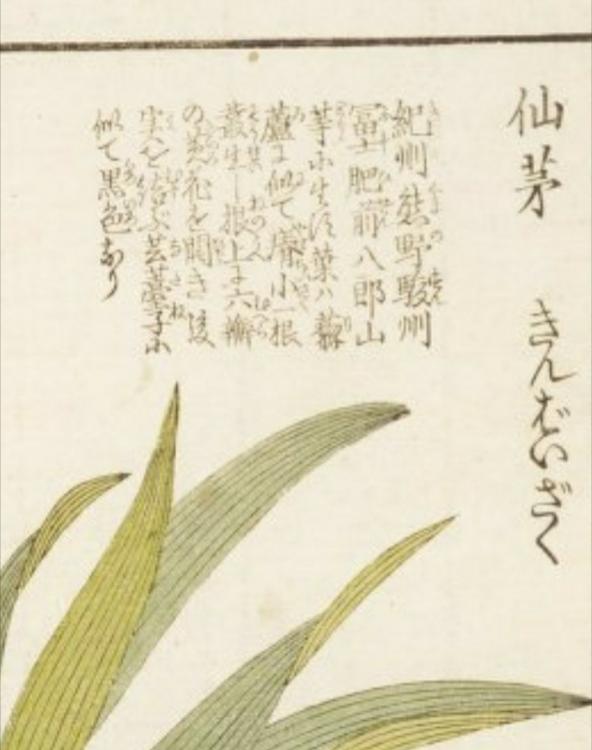 仙茅 きんばいざく
紀州熊野駿州
冨士肥前八郎山
等に生ず葉ハ藜
蘆に似て小一根
叢生し根上に六瓣
の黄花を開き後
実を結ぶ芸薹子に
似て黒色あり